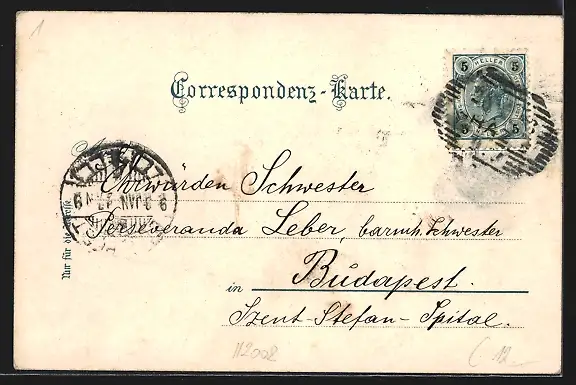 1
5 HELLER 5
5 5
Correspondenz-Karte.
Ehrwürden Schwester
Perseveranda Leber, barmh. Schwester
in Budapest.
Szent-Stefan-Spital.
Nur für die Adresse
112002